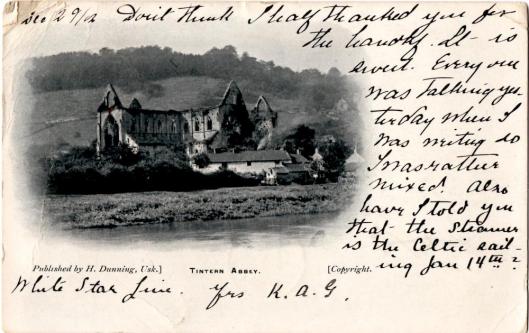 Dec 29/02 Don't think I half thanked you for
the handkf. It is
sweet. Every one
was talking yes-
terday when I
was writing so
I was rather
mixed. Also
have I told you
that the steamer
is the Celtic sail-
ing Jan 14th?
Published by H. Dunning, Usk.] TINTERN ABBEY. [Copyright.
White Star Line. Yrs K. A. G.